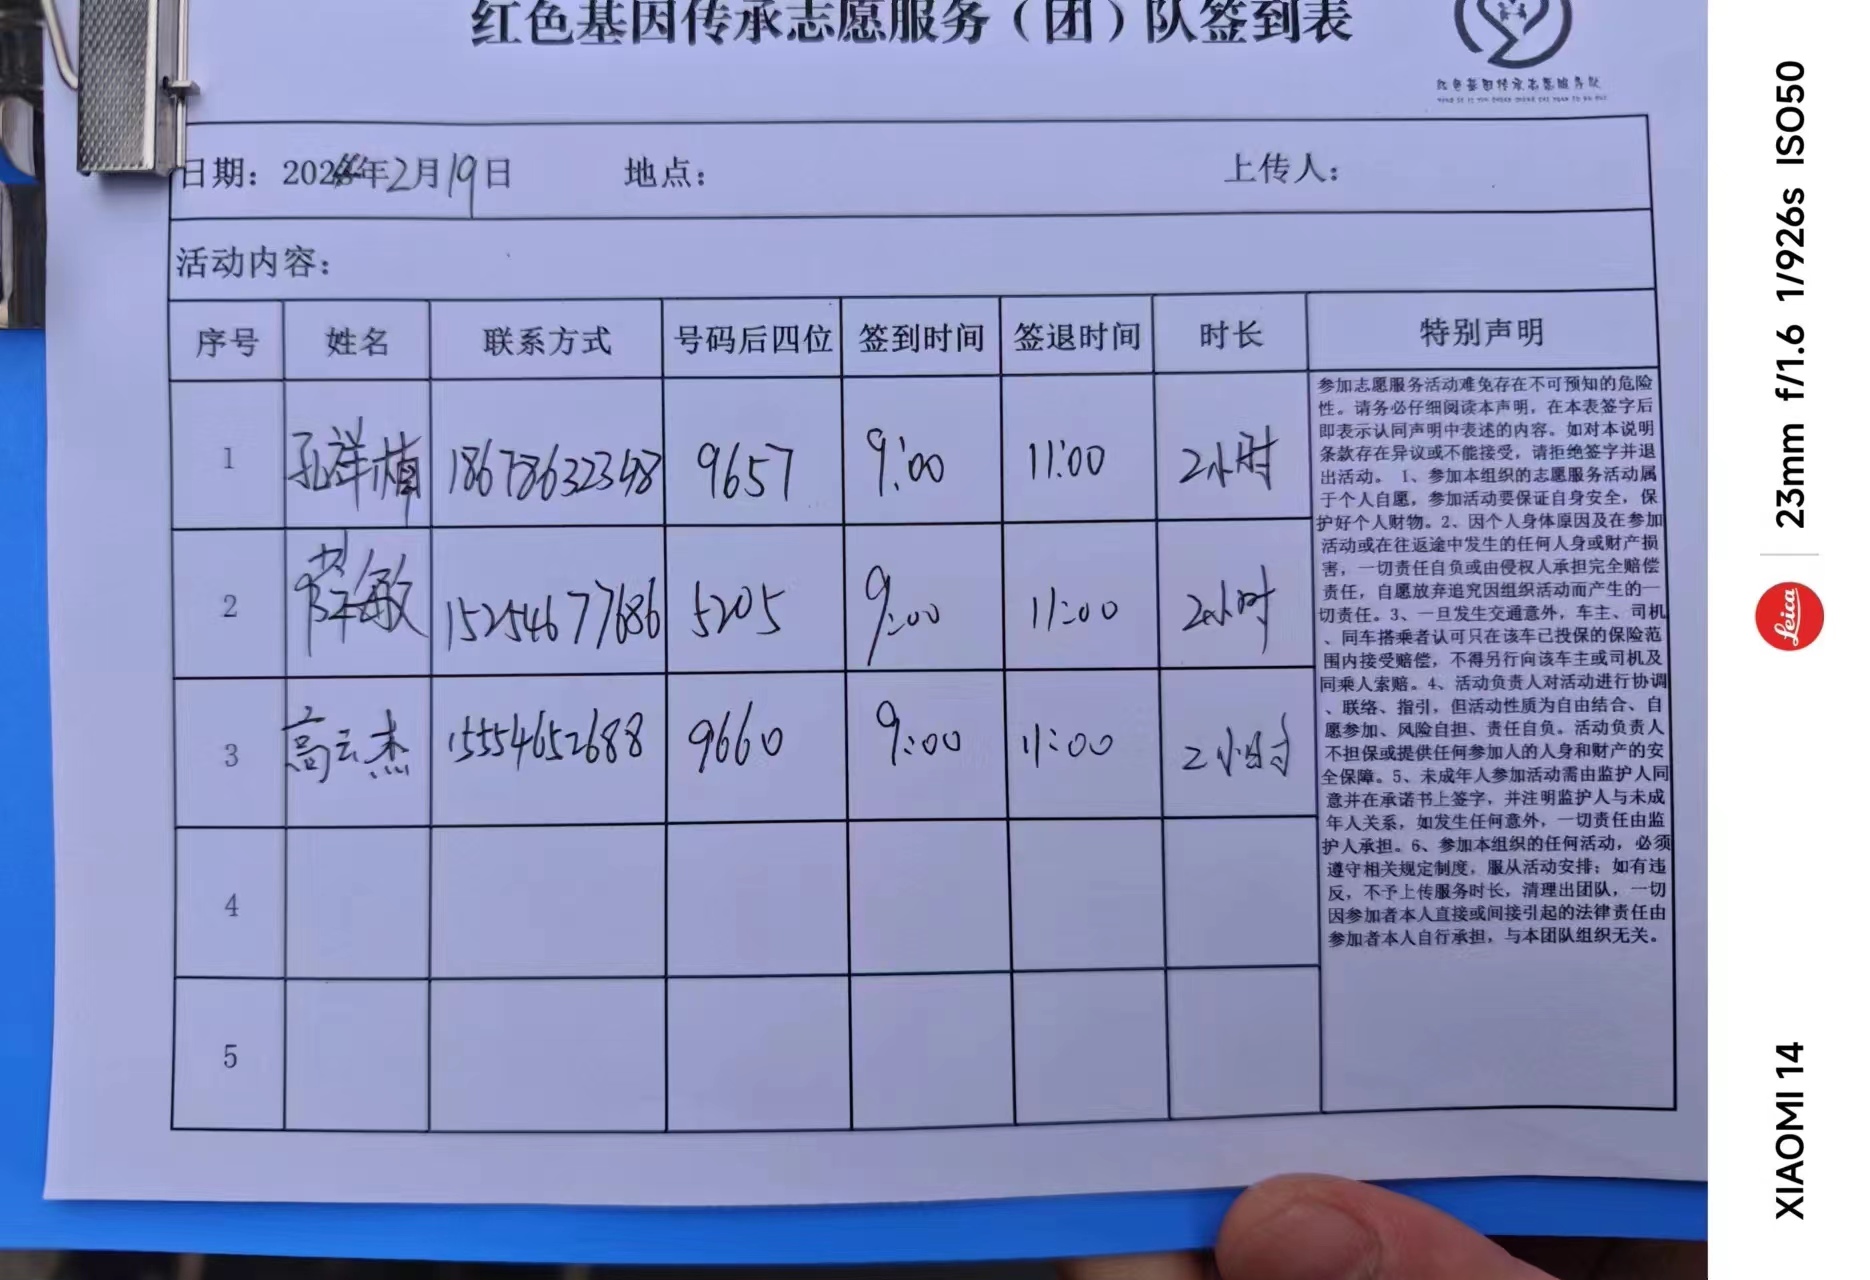 红色基因传承志愿服务（团）队签到表
红色基因传承志愿服务队
日期：202 年2月19日 地点： 上传人：
活动内容：
序号 姓名 联系方式 号码后四位 签到时间 签退时间 时长 特别声明
1 孔祥楠 18678632348 9657 9:00 11:00 2小时
2 敏 15254677686 5205 9:00 11:00 2小时
3 高云杰 15554652688 9660 9:00 11:00 2小时
4
5
参加志愿服务活动难免存在不可预知的危险
性。请务必仔细阅读本声明，在本表签字后
即表示认同声明中表述的内容。如对本说明
条款存在异议或不能接受，请拒绝签字并退
出活动。 1、参加本组织的志愿服务活动属
于个人自愿，参加活动要保证自身安全，保
护好个人财物。2、因个人身体原因及在参加
活动或在往返途中发生的任何人身或财产损
害，一切责任自负或由侵权人承担完全赔偿
责任，自愿放弃追究因组织活动而产生的一
切责任。3、一旦发生交通意外，车主、司机
、同车搭乘者认可只在该车已投保的保险范
围内接受赔偿，不得另行向该车主或司机及
同乘人索赔。4、活动负责人对活动进行协调
、联络、指引，但活动性质为自由结合、自
愿参加、风险自担、责任自负。活动负责人
不担保或提供任何参加人的人身和财产的安
全保障。5、未成年人参加活动需由监护人同
意并在承诺书上签字，并注明监护人与未成
年人关系，如发生任何意外，一切责任由监
护人承担。6、参加本组织的任何活动，必须
遵守相关规定制度，服从活动安排；如有违
反，不予上传服务时长，清理出团队，一切
因参加者本人直接或间接引起的法律责任由
参加者本人自行承担，与本团队组织无关。
23mm f/1.6 1/926s ISO50
Leica
XIAOMI 14